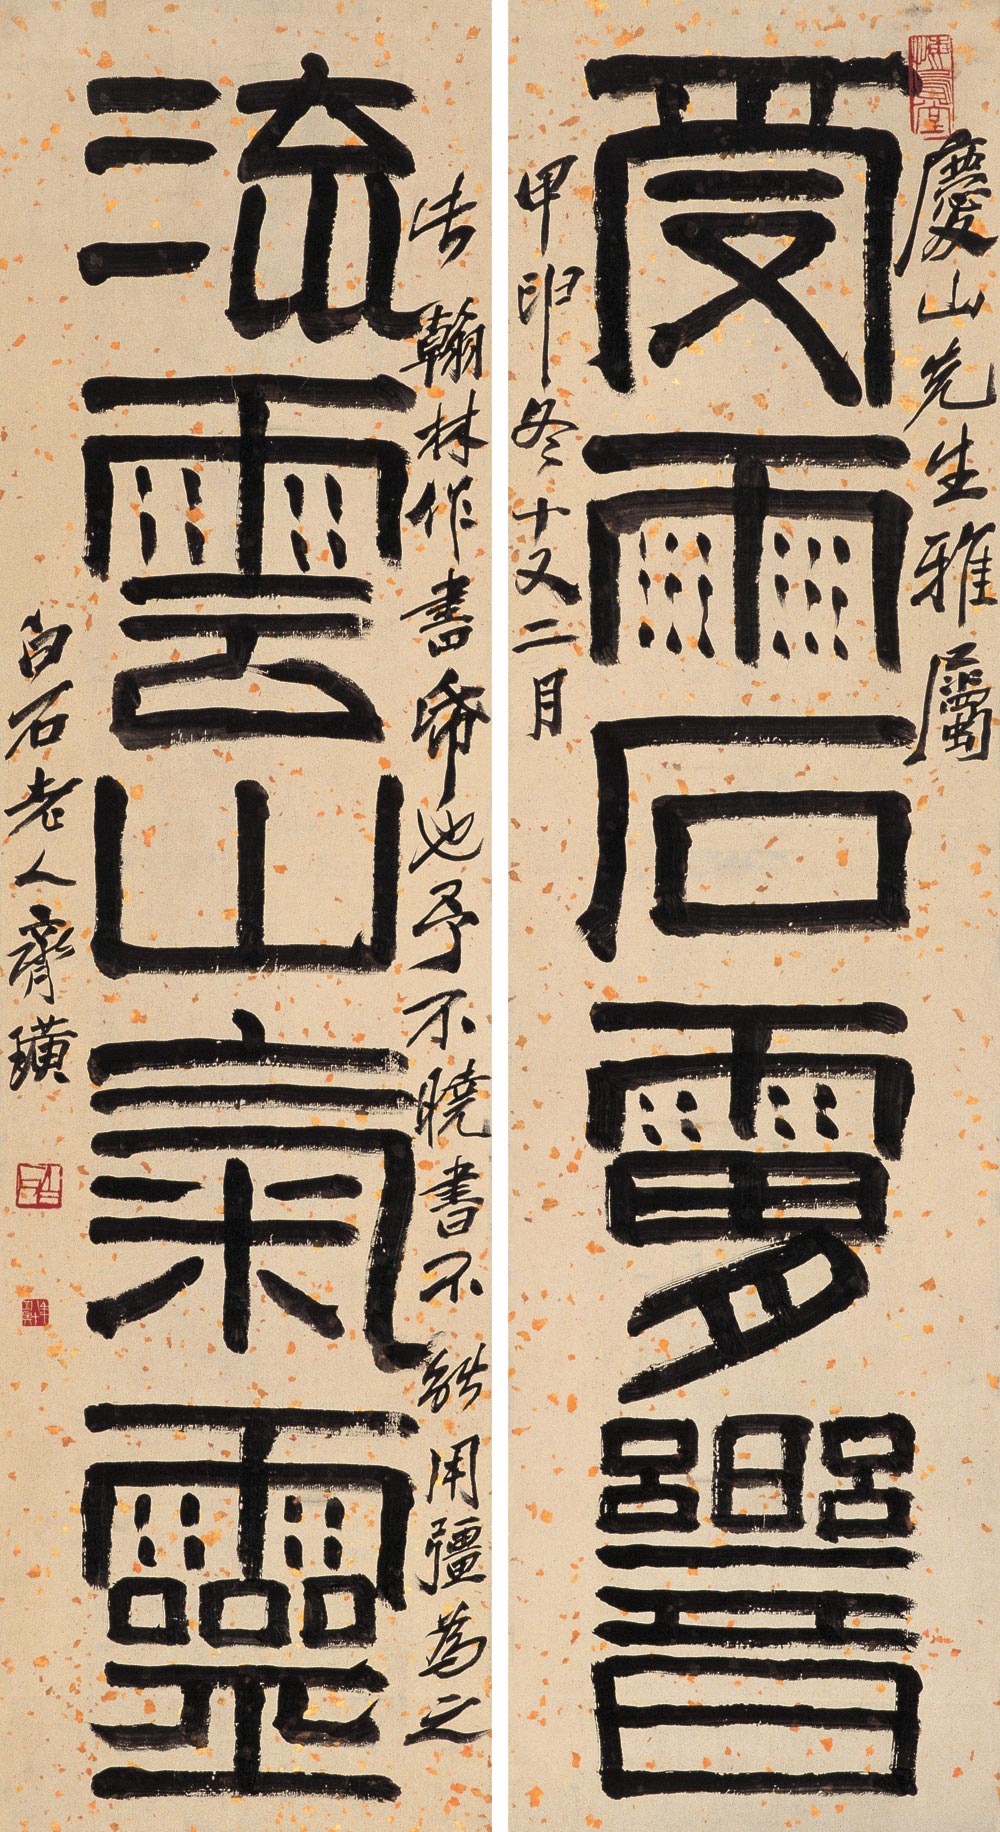 慶山先生雅屬
受雨石響
甲冬十又二月
翰林作書也予不曉書不能用彊為之
流雲山氣靈
白石老人齊璜